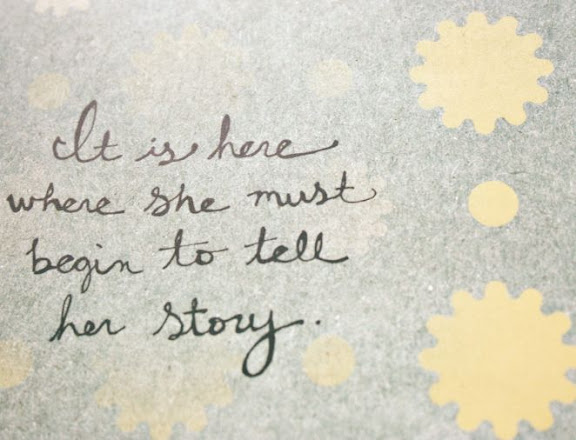 It is here
where she must
begin to tell
her story.